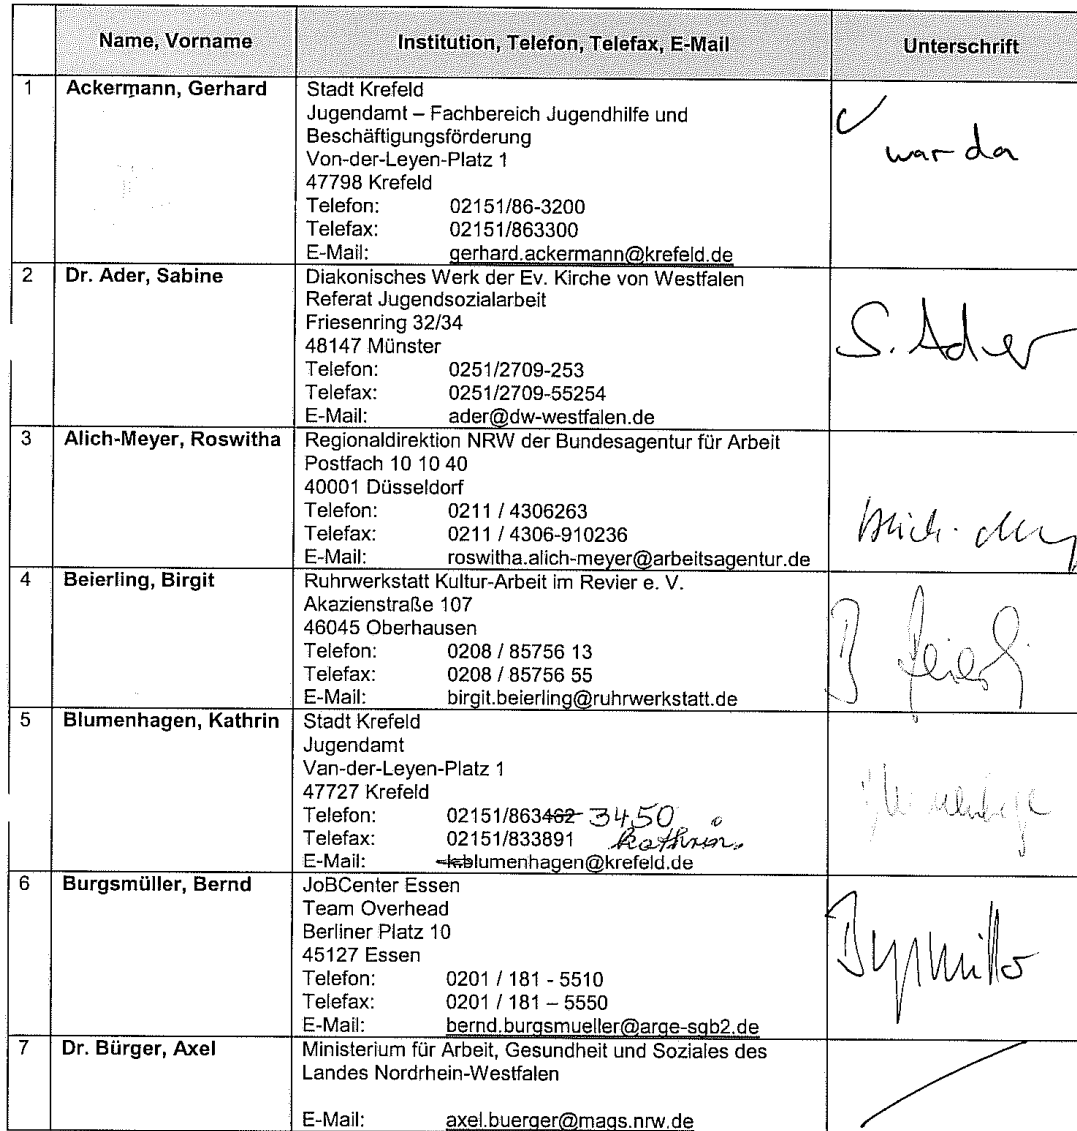 Name, Vorname Institution, Telefon, Telefax, E-Mail Unterschrift
1 Ackermann, Gerhard Stadt Krefeld
Jugendamt – Fachbereich Jugendhilfe und
Beschäftigungsförderung
Von-der-Leyen-Platz 1
47798 Krefeld
Telefon: 02151/86-3200
Telefax: 02151/863300
E-Mail: gerhard.ackermann@krefeld.de
war da
2 Dr. Ader, Sabine Diakonisches Werk der Ev. Kirche von Westfalen
Referat Jugendsozialarbeit
Friesenring 32/34
48147 Münster
Telefon: 0251/2709-253
Telefax: 0251/2709-55254
E-Mail: ader@dw-westfalen.de
S. Ader
3 Alich-Meyer, Roswitha Regionaldirektion NRW der Bundesagentur für Arbeit
Postfach 10 10 40
40001 Düsseldorf
Telefon: 0211 / 4306263
Telefax: 0211 / 4306-910236
E-Mail: roswitha.alich-meyer@arbeitsagentur.de
4 Beierling, Birgit Ruhrwerkstatt Kultur-Arbeit im Revier e. V.
Akazienstraße 107
46045 Oberhausen
Telefon: 0208 / 85756 13
Telefax: 0208 / 85756 55
E-Mail: birgit.beierling@ruhrwerkstatt.de
5 Blumenhagen, Kathrin Stadt Krefeld
Jugendamt
Van-der-Leyen-Platz 1
47727 Krefeld
Telefon: 02151/863462 3450
Telefax: 02151/833891 kathrin.
E-Mail: k.blumenhagen@krefeld.de
6 Burgsmüller, Bernd JoBCenter Essen
Team Overhead
Berliner Platz 10
45127 Essen
Telefon: 0201 / 181 - 5510
Telefax: 0201 / 181 – 5550
E-Mail: bernd.burgsmueller@arge-sgb2.de
7 Dr. Bürger, Axel Ministerium für Arbeit, Gesundheit und Soziales des
Landes Nordrhein-Westfalen
E-Mail: axel.buerger@mags.nrw.de